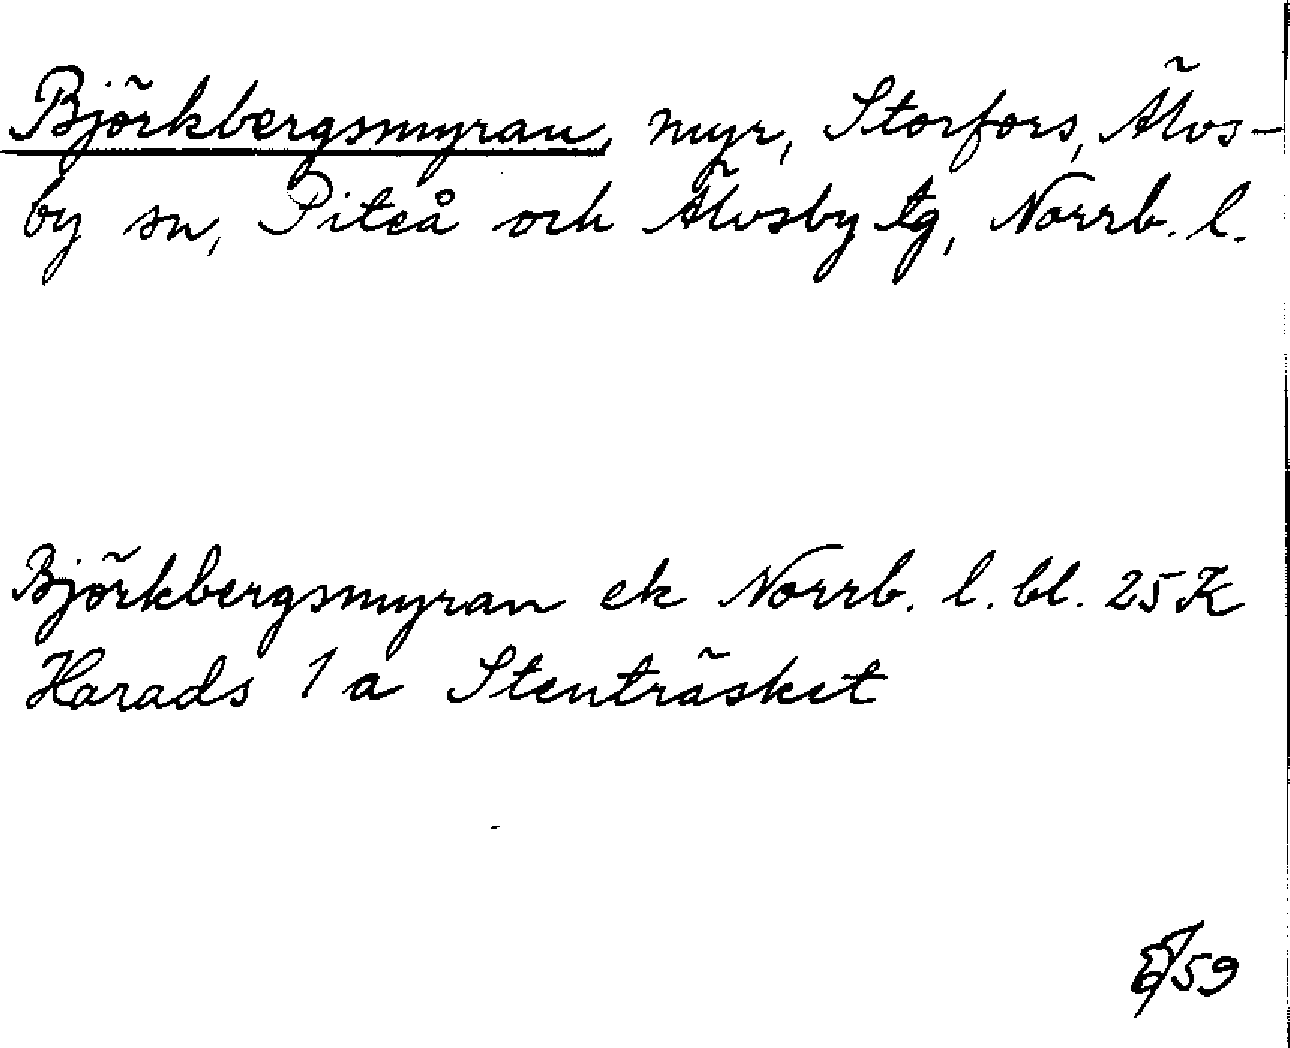 Björkbergsmyran, myr, Storfors, Älvs-
by sn, Piteå och Älvsby tg, Norrb. l.
Björkbergsmyran ek Norrb. l. bl. 25 K
Harads 1 a Stenträsket
59